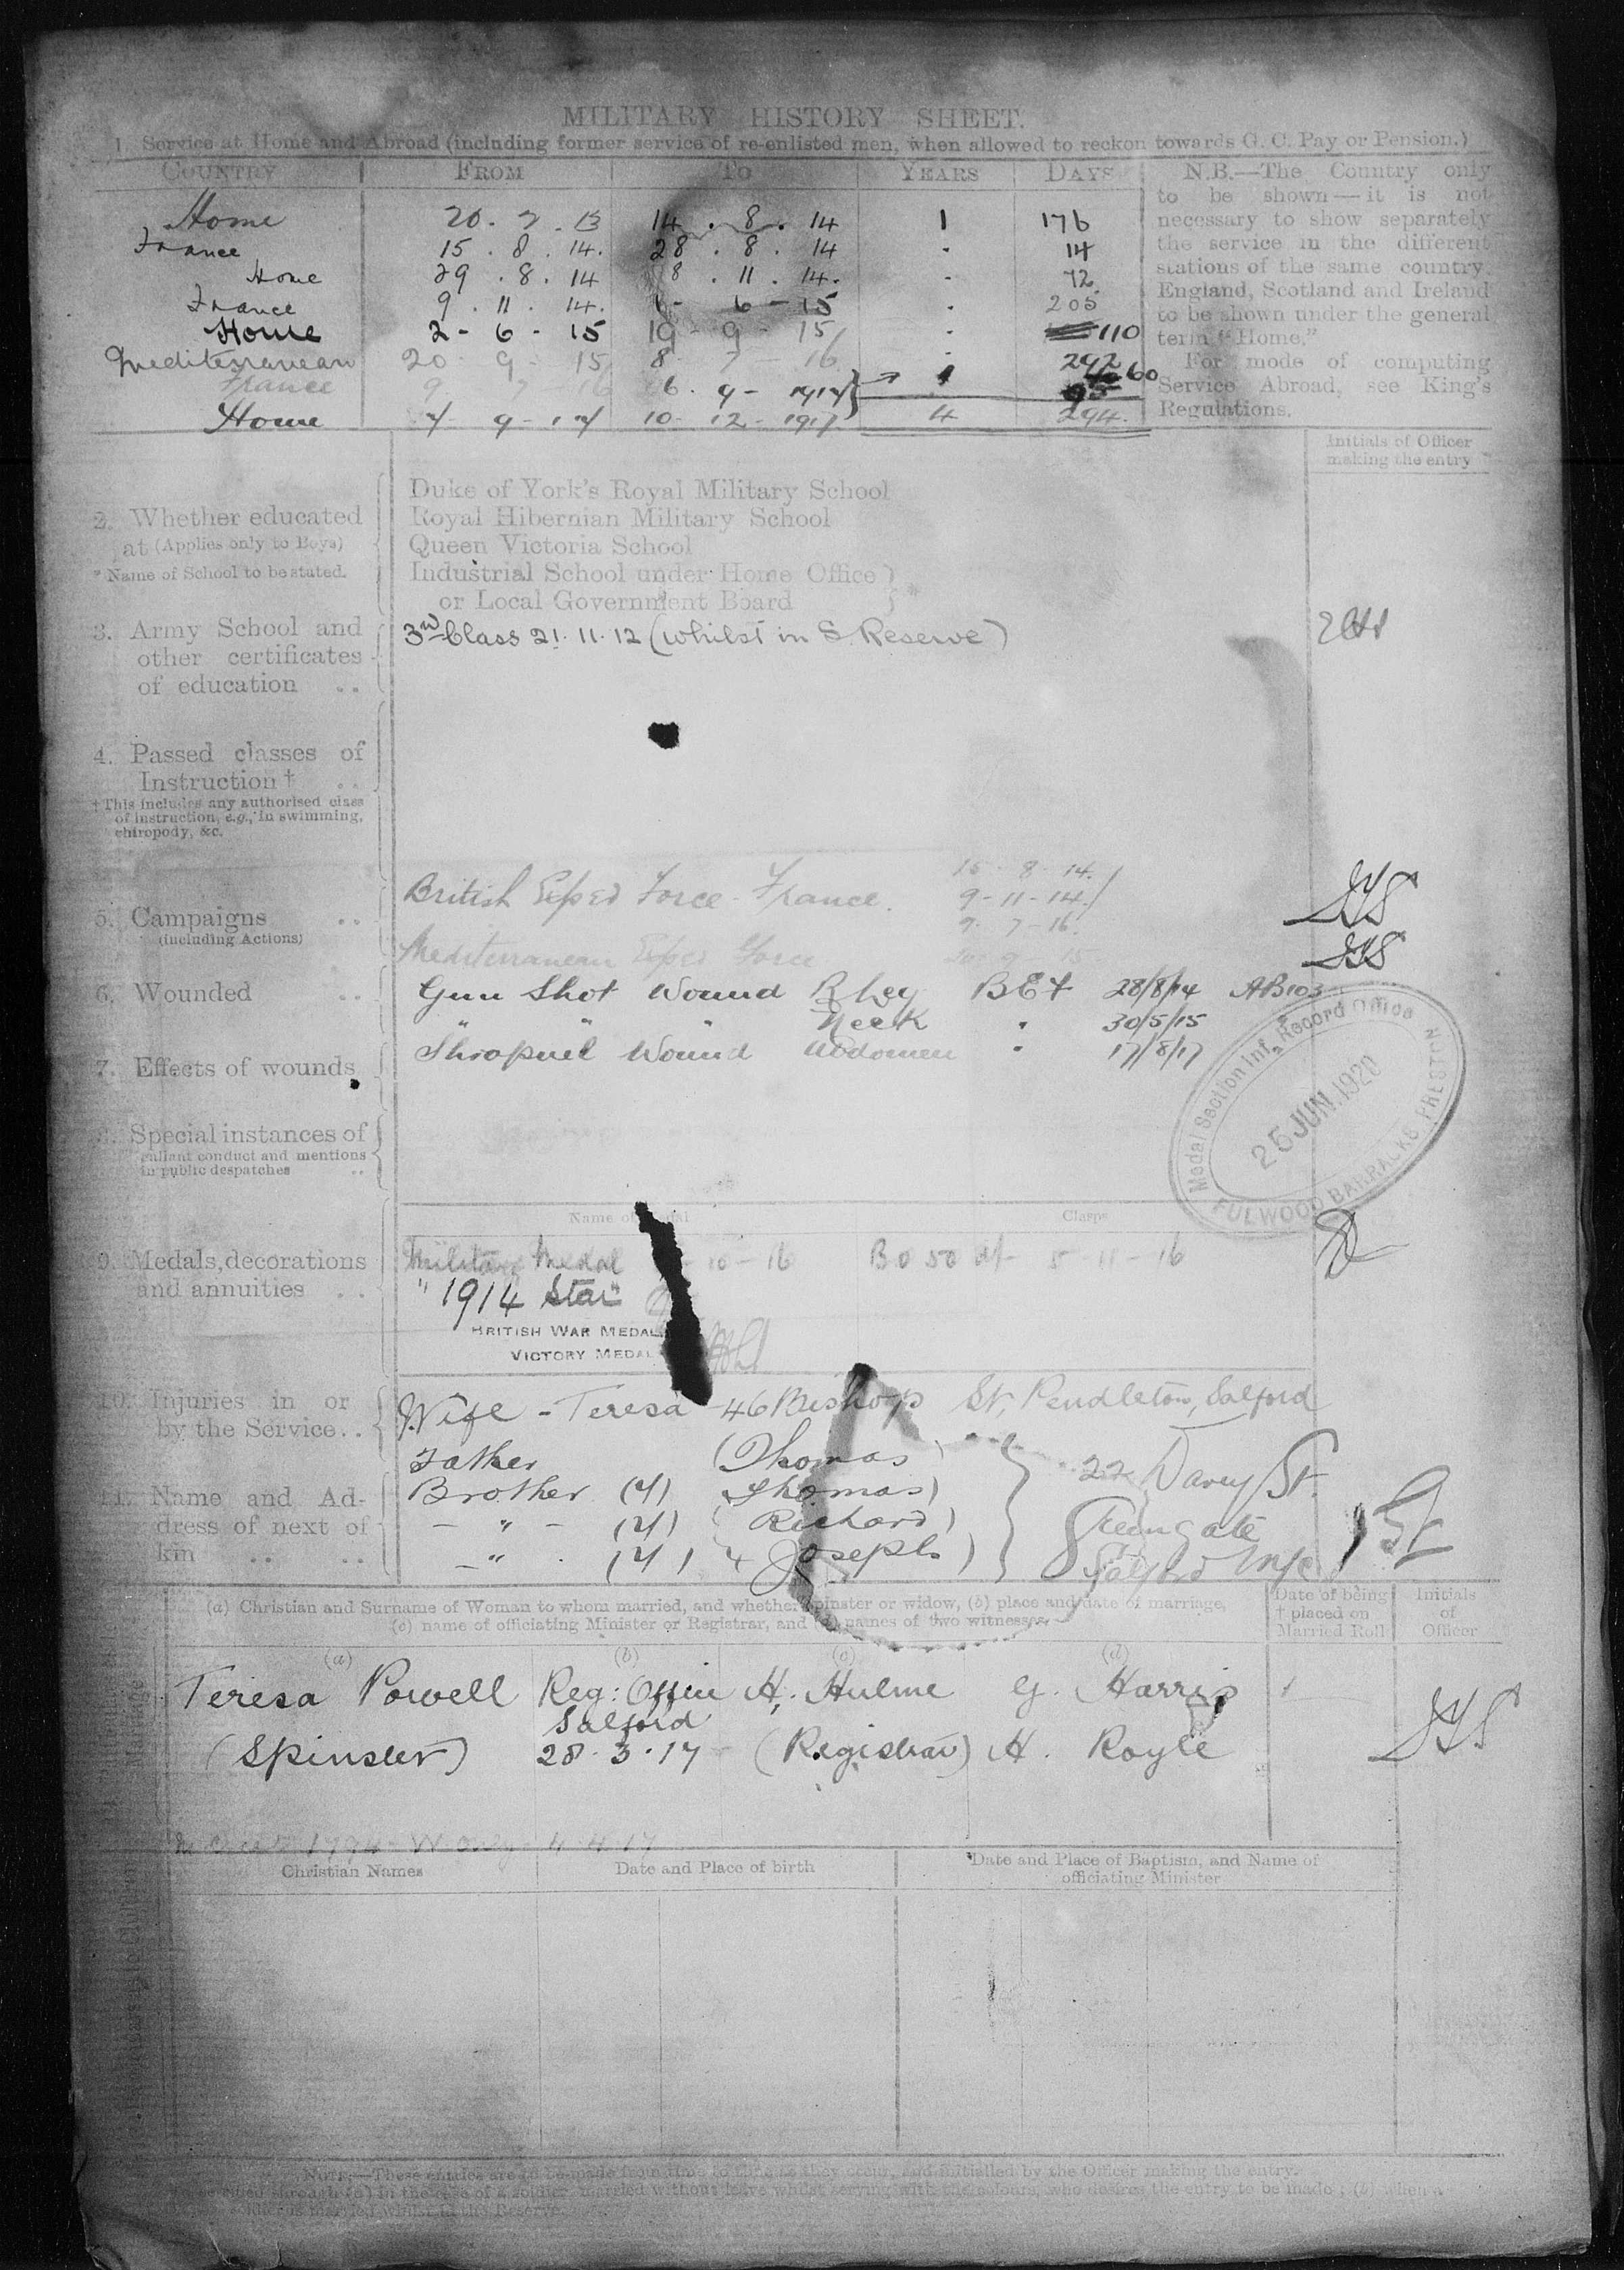 MILITARY HISTORY SHEET.
1. Service at Home and Abroad (including former service of re-enlisted men, when allowed to reckon towards G. C. Pay or Pension.)
COUNTRY FROM TO YEARS DAYS
Home 20 . 2 . 13 14 . 8 . 14 1 176
France 15 . 8 . 14. 28 . 8 . 14 . 14
Home 29 . 8 . 14 8 . 11 . 14. . 72
France 9 . 11 . 14. 1 - 6 - 15 . 205
Home 2 - 6 - 15 19 - 9 - 15 . 110
Mediterranean 20 - 9 - 15 8 - 7 - 16 . 292
France 9 - 7 - 16 6 . 9 - 1917 1 60
Home 7 - 9 - 17 10 - 12 - 1917 4 294.
N.B.—The Country only
to be shown—it is not
necessary to show separately
the service in the different
stations of the same country.
England, Scotland and Ireland
to be shown under the general
term "Home."
For mode of computing
Service Abroad, see King's
Regulations.
Initials of Officer
making the entry
2. Whether educated
at (Applies only to Boys)
* Name of School to be stated.
Duke of York's Royal Military School
Royal Hibernian Military School
Queen Victoria School
Industrial School under Home Office
or Local Government Board
3. Army School and
other certificates
of education ..
3rd Class 21.11.12 (whilst in S. Reserve)
4. Passed classes of
Instruction † ..
† This includes any authorised class
of instruction, e.g., in swimming,
chiropody, &c.
5. Campaigns ..
(including Actions)
British Exped Force France. 15 - 8 - 14.
9 - 11 - 14.
9 - 7 - 16.
Mediterranean Exped Force 20 - 9 - 15
6. Wounded ..
Gun Shot Wound R Leg BEF 28/8/14 AB103
" " " Neck " 30/5/15
Shrapnel Wound Abdomen " 17/8/17
7. Effects of wounds
Medal Section Inf. Record Office
25 JUN. 1920
FULWOOD BARRACKS PRESTON
8. Special instances of
gallant conduct and mentions
in public despatches ..
Name of Medal Clasps
9. Medals, decorations
and annuities ..
Military Medal - 10 - 16 BO 50 5 - 11 - 16
"1914 Star"
BRITISH WAR MEDAL
VICTORY MEDAL
10. Injuries in or
by the Service ..
11. Name and Ad-
dress of next of
kin .. ..
Wife - Teresa - 46 Bishop St, Pendleton, Salford
Father (Thomas)
Brother (Y) (Thomas)
- " - (Y) (Richard)
- " - (Y) (Joseph)
22 Davey St.
Greengate
Salford
(a) Christian and Surname of Woman to whom married, and whether spinster or widow, (b) place and date of marriage,
(c) name of officiating Minister or Registrar, and (d) names of two witnesses
Date of being
† placed on
Married Roll
Initials
of
Officer
(a) (b) (c) (d)
Teresa Powell Reg: Office H. Hulme G. Harris
Salford
(Spinster) 28.3.17 (Registrar) H. Royle
Christian Names Date and Place of birth Date and Place of Baptism, and Name of
officiating Minister
NOTE.—These entries are to be made from time to time as they occur, and initialled by the Officer making the entry.